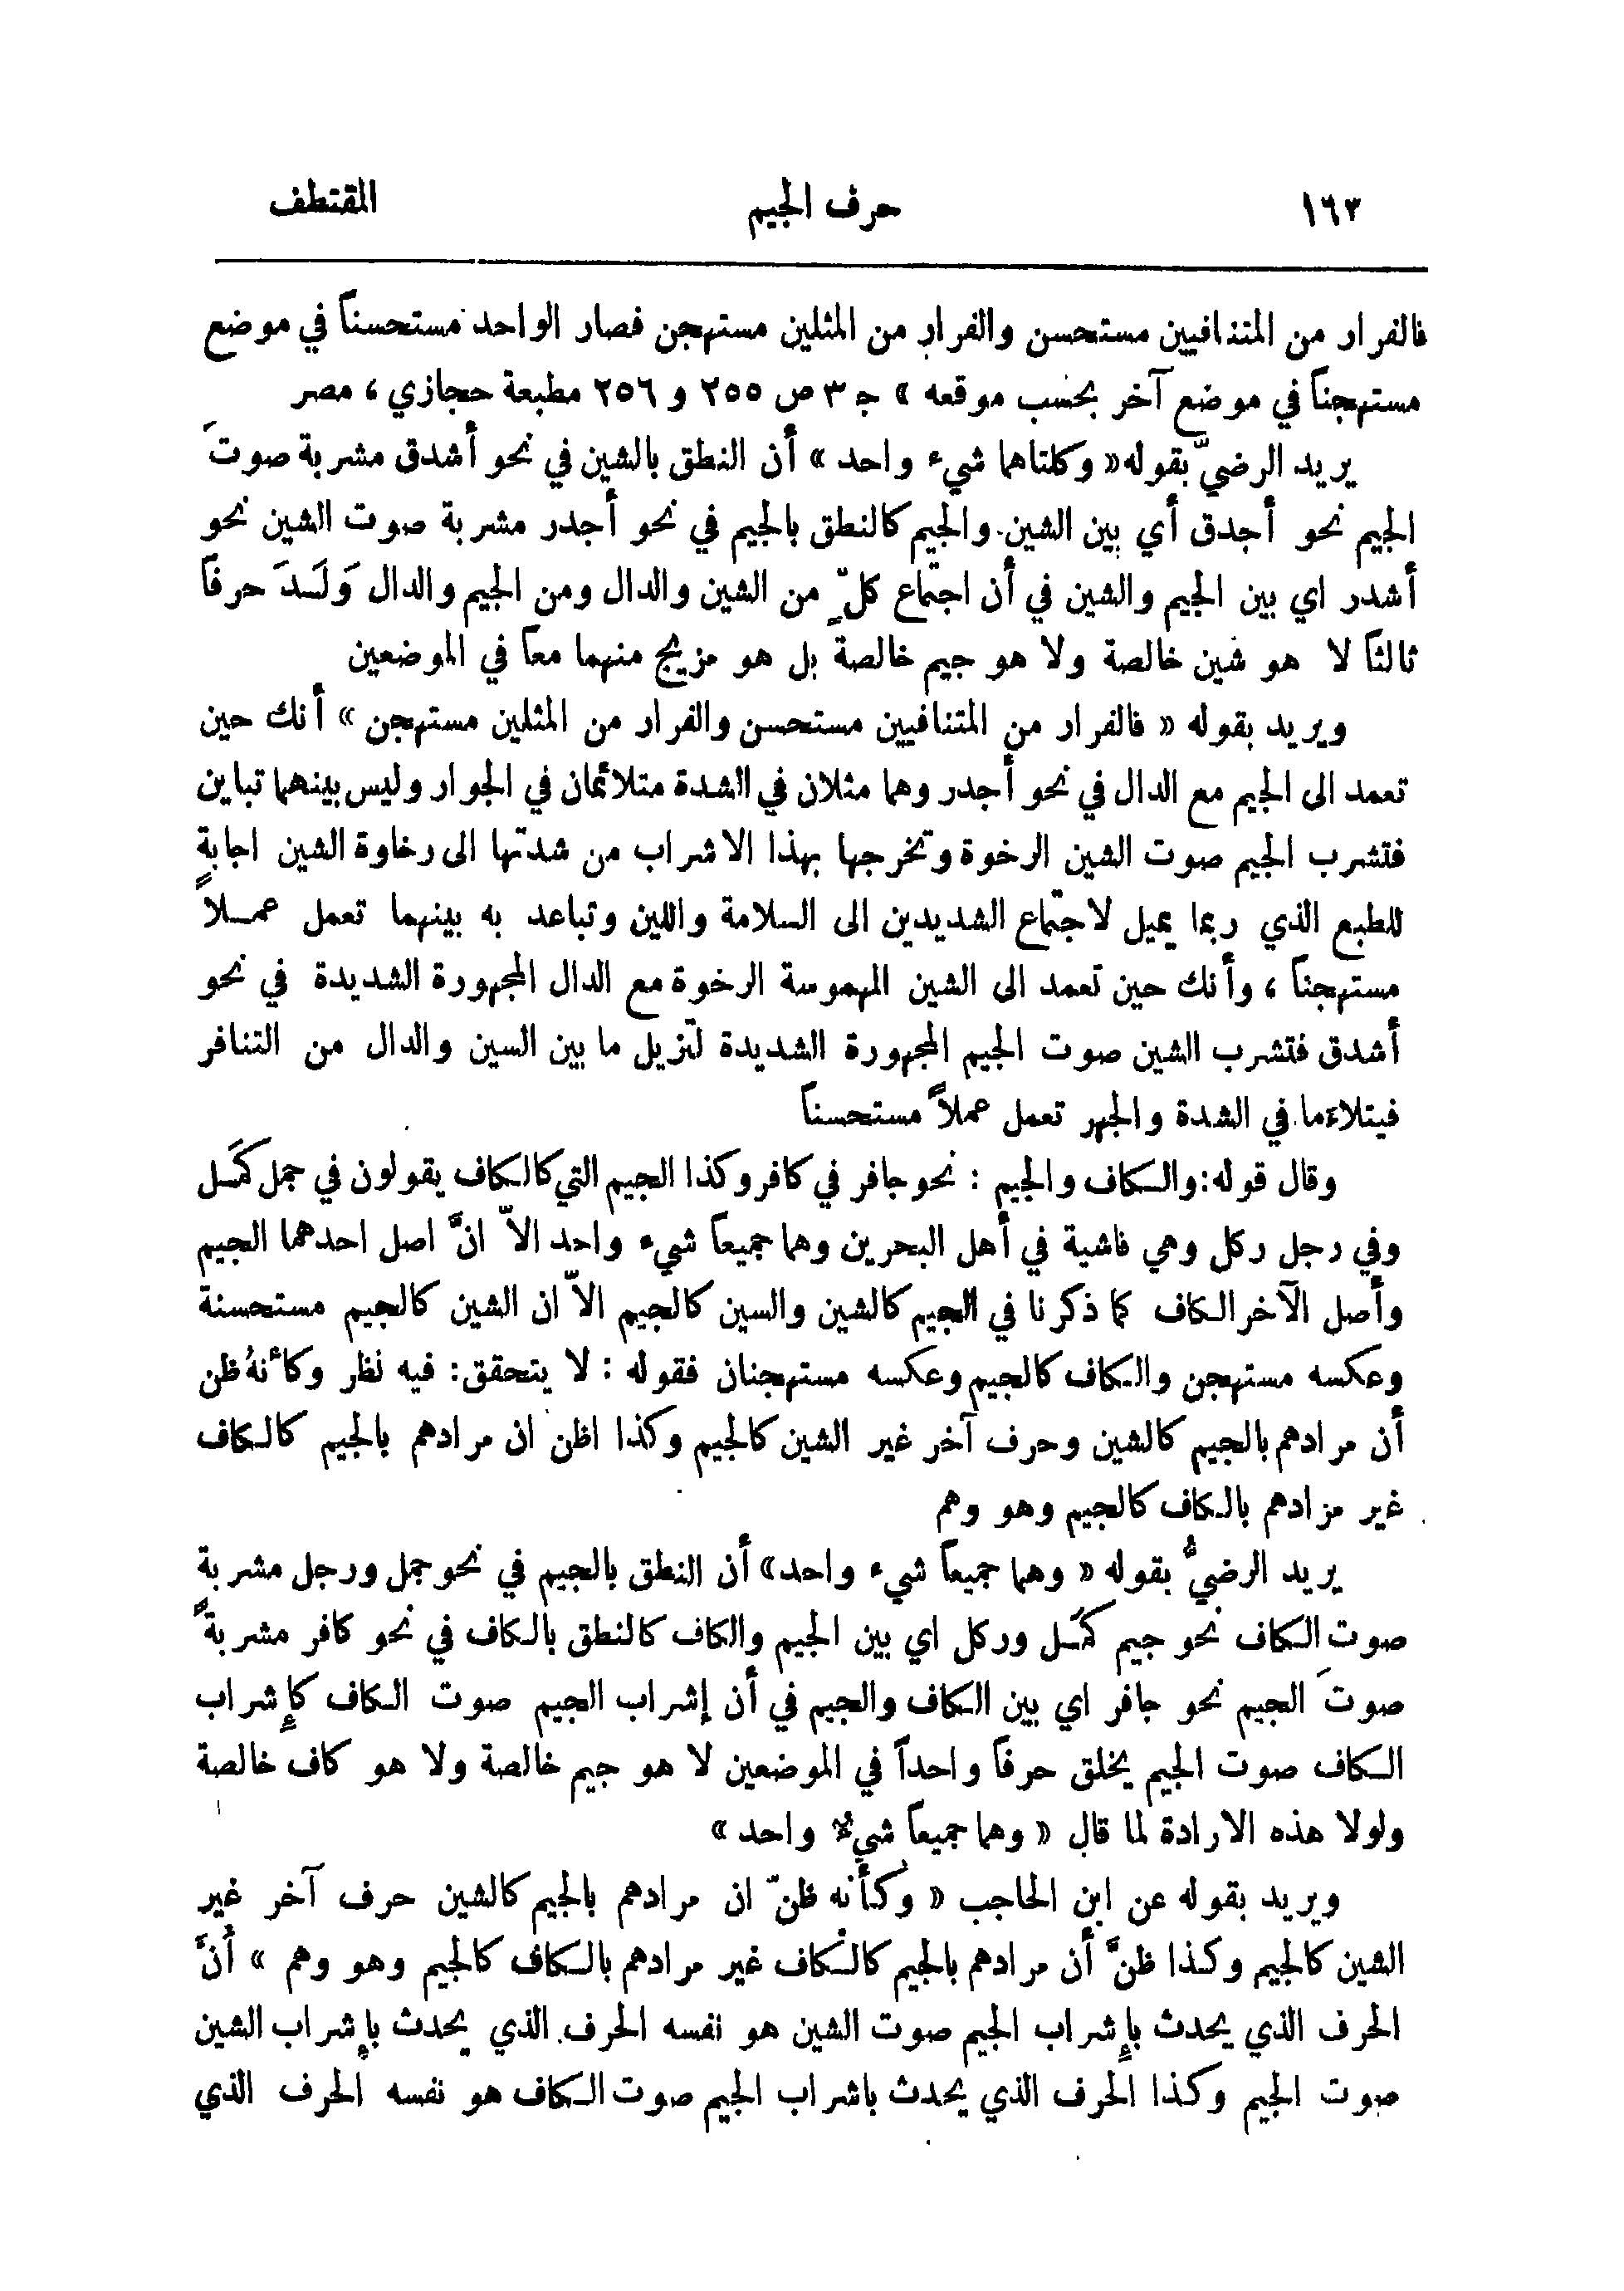 ١٦٣ حرف الجيم المقتطف
فالفرار من المتنافيين مستحسن والفرار من المثلين مستهجن فصار الواحد مستحسناً في موضع
مستهجناً في موضع آخر بحسب موقعه » ج ٣ ص ٢٥٥ و ٢٥٦ مطبعة حجازي ، مصر
يريد الرضيّ بقوله « وكلتاهما شيء واحد » أن النطق بالشين في نحو أشدق مشربة صوتَ
الجيم نحو أجدق أي بين الشين والجيم كالنطق بالجيم في نحو أجدر مشربة صوت الشين نحو
أشدر اي بين الجيم والشين في أن اجتماع كلّ من الشين والدال ومن الجيم والدال وَلَـدَ حرفاً
ثالثاً لا هو شين خالصة ولا هو جيم خالصة بل هو مزيج منهما معاً في الموضعين
ويريد بقوله « فالفرار من المتنافيين مستحسن والفرار من المثلين مستهجن » أنك حين
تعمد الى الجيم مع الدال في نحو أجدر وهما مثلان في الشدة متلائمان في الجوار وليس بينهما تباين
فتشرب الجيم صوت الشين الرخوة وتخرجها بهذا الاشراب من شدتها الى رخاوة الشين اجابةً
للطبع الذي ربما يميل لاجتماع الشديدين الى السلامة واللين وتباعد به بينهما تعمل عمـلاً
مستهجناً ، وأنك حين تعمد الى الشين المهموسة الرخوة مع الدال المجهورة الشديدة في نحو
أشدق فتشرب الشين صوت الجيم المجهورة الشديدة لتزيل ما بين السين والدال من التنافر
فيتلاءما في الشدة والجهر تعمل عملاً مستحسناً
وقال قوله: والكاف والجيم : نحو جافر في كافر وكذا الجيم التي كالكاف يقولون في جمل كَمَـل
وفي رجل ركل وهي فاشية في أهل البحرين وهما جميعاً شيء واحد الاّ انَّ اصل احدهما الجيم
وأصل الآخر الكاف كما ذكرنا في الجيم كالشين والسين كالجيم الاّ ان الشين كالجيم مستحسنة
وعكسه مستهجن والكاف كالجيم وعكسه مستهجنان فقوله : لا يتحقق: فيه نظر وكأنهُ ظن
أن مرادهم بالجيم كالشين وحرف آخر غير الشين كالجيم وكذا اظن ان مرادهم بالجيم كالكاف
غير مرادهم بالكاف كالجيم وهو وهم
يريد الرضيُّ بقوله « وهما جميعاً شيء واحد » أن النطق بالجيم في نحو جمل ورجل مشربة
صوت الكاف نحو جيم كَمَـل وركل اي بين الجيم والكاف كالنطق بالكاف في نحو كافر مشربةً
صوتَ الجيم نحو جافر اي بين الكاف والجيم في أن إشراب الجيم صوت الكاف كإشراب
الكاف صوت الجيم يخلق حرفاً واحداً في الموضعين لا هو جيم خالصة ولا هو كاف خالصة
ولولا هذه الارادة لما قال « وهما جميعاً شيءٌ واحد »
ويريد بقوله عن ابن الحاجب « وكأنه ظنّ ان مرادهم بالجيم كالشين حرف آخر غير
الشين كالجيم وكذا ظنَّ أن مرادهم بالجيم كالكاف غير مرادهم بالكاف كالجيم وهو وهم » أنَّ
الحرف الذي يحدث بإشراب الجيم صوت الشين هو نفسه الحرف الذي يحدث بإشراب الشين
صوت الجيم وكذا الحرف الذي يحدث باشراب الجيم صوت الكاف هو نفسه الحرف الذي